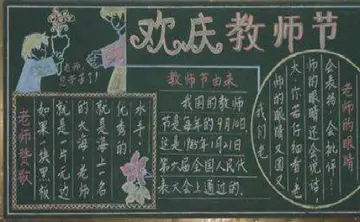 欢庆教师节
老师
您辛苦了!
教师节由来
我国的教师
节是每年的9月10日
这是1985年1月21日
第六届全国人民代
表大会上通过的。
老师赞歌
如果
就是一片无边
的大海,老师
就是海上一名
优秀的
水手
老师的眼睛
会表扬,会批评!
师的眼睛还会说话
大,你若仔细看老
师的眼睛又圆又
我们老